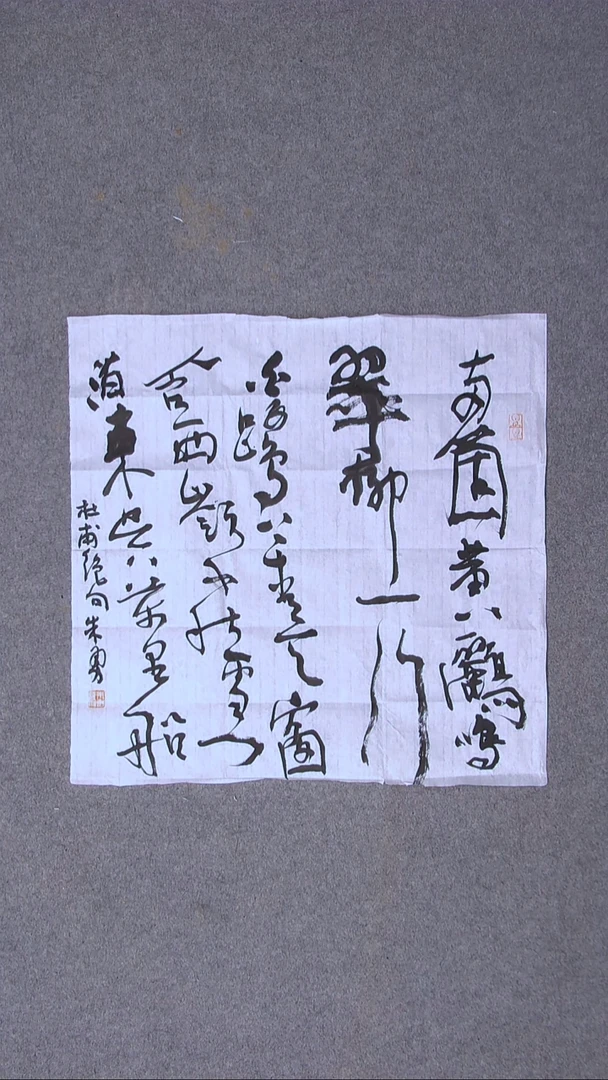 两箇黄鸝鳴
翠柳一行
白鷺上青天窗
含西嶺千秋雪门
泊東吴万里船
杜甫绝句朱勇